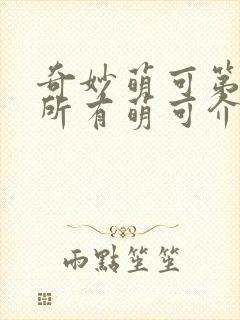 奇妙萌可第
所有萌可介
雨點笙笙